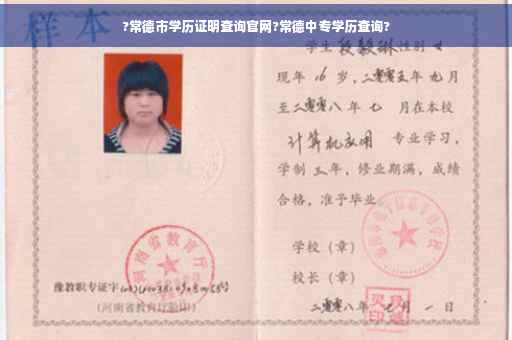 ?常德市学历证明查询官网?常德中专学历查询?
样本
河南省教育厅
豫教职专证字
(河南省教育厅验印)
学生段毅琳性别女
现年16岁,二零零五年九月
至二零零八年七月在本校
计算机应用 专业学习,
学制三年,修业期满,成绩
合格,准予毕业
学校(章)
校长(章)
二零零八年七月一日